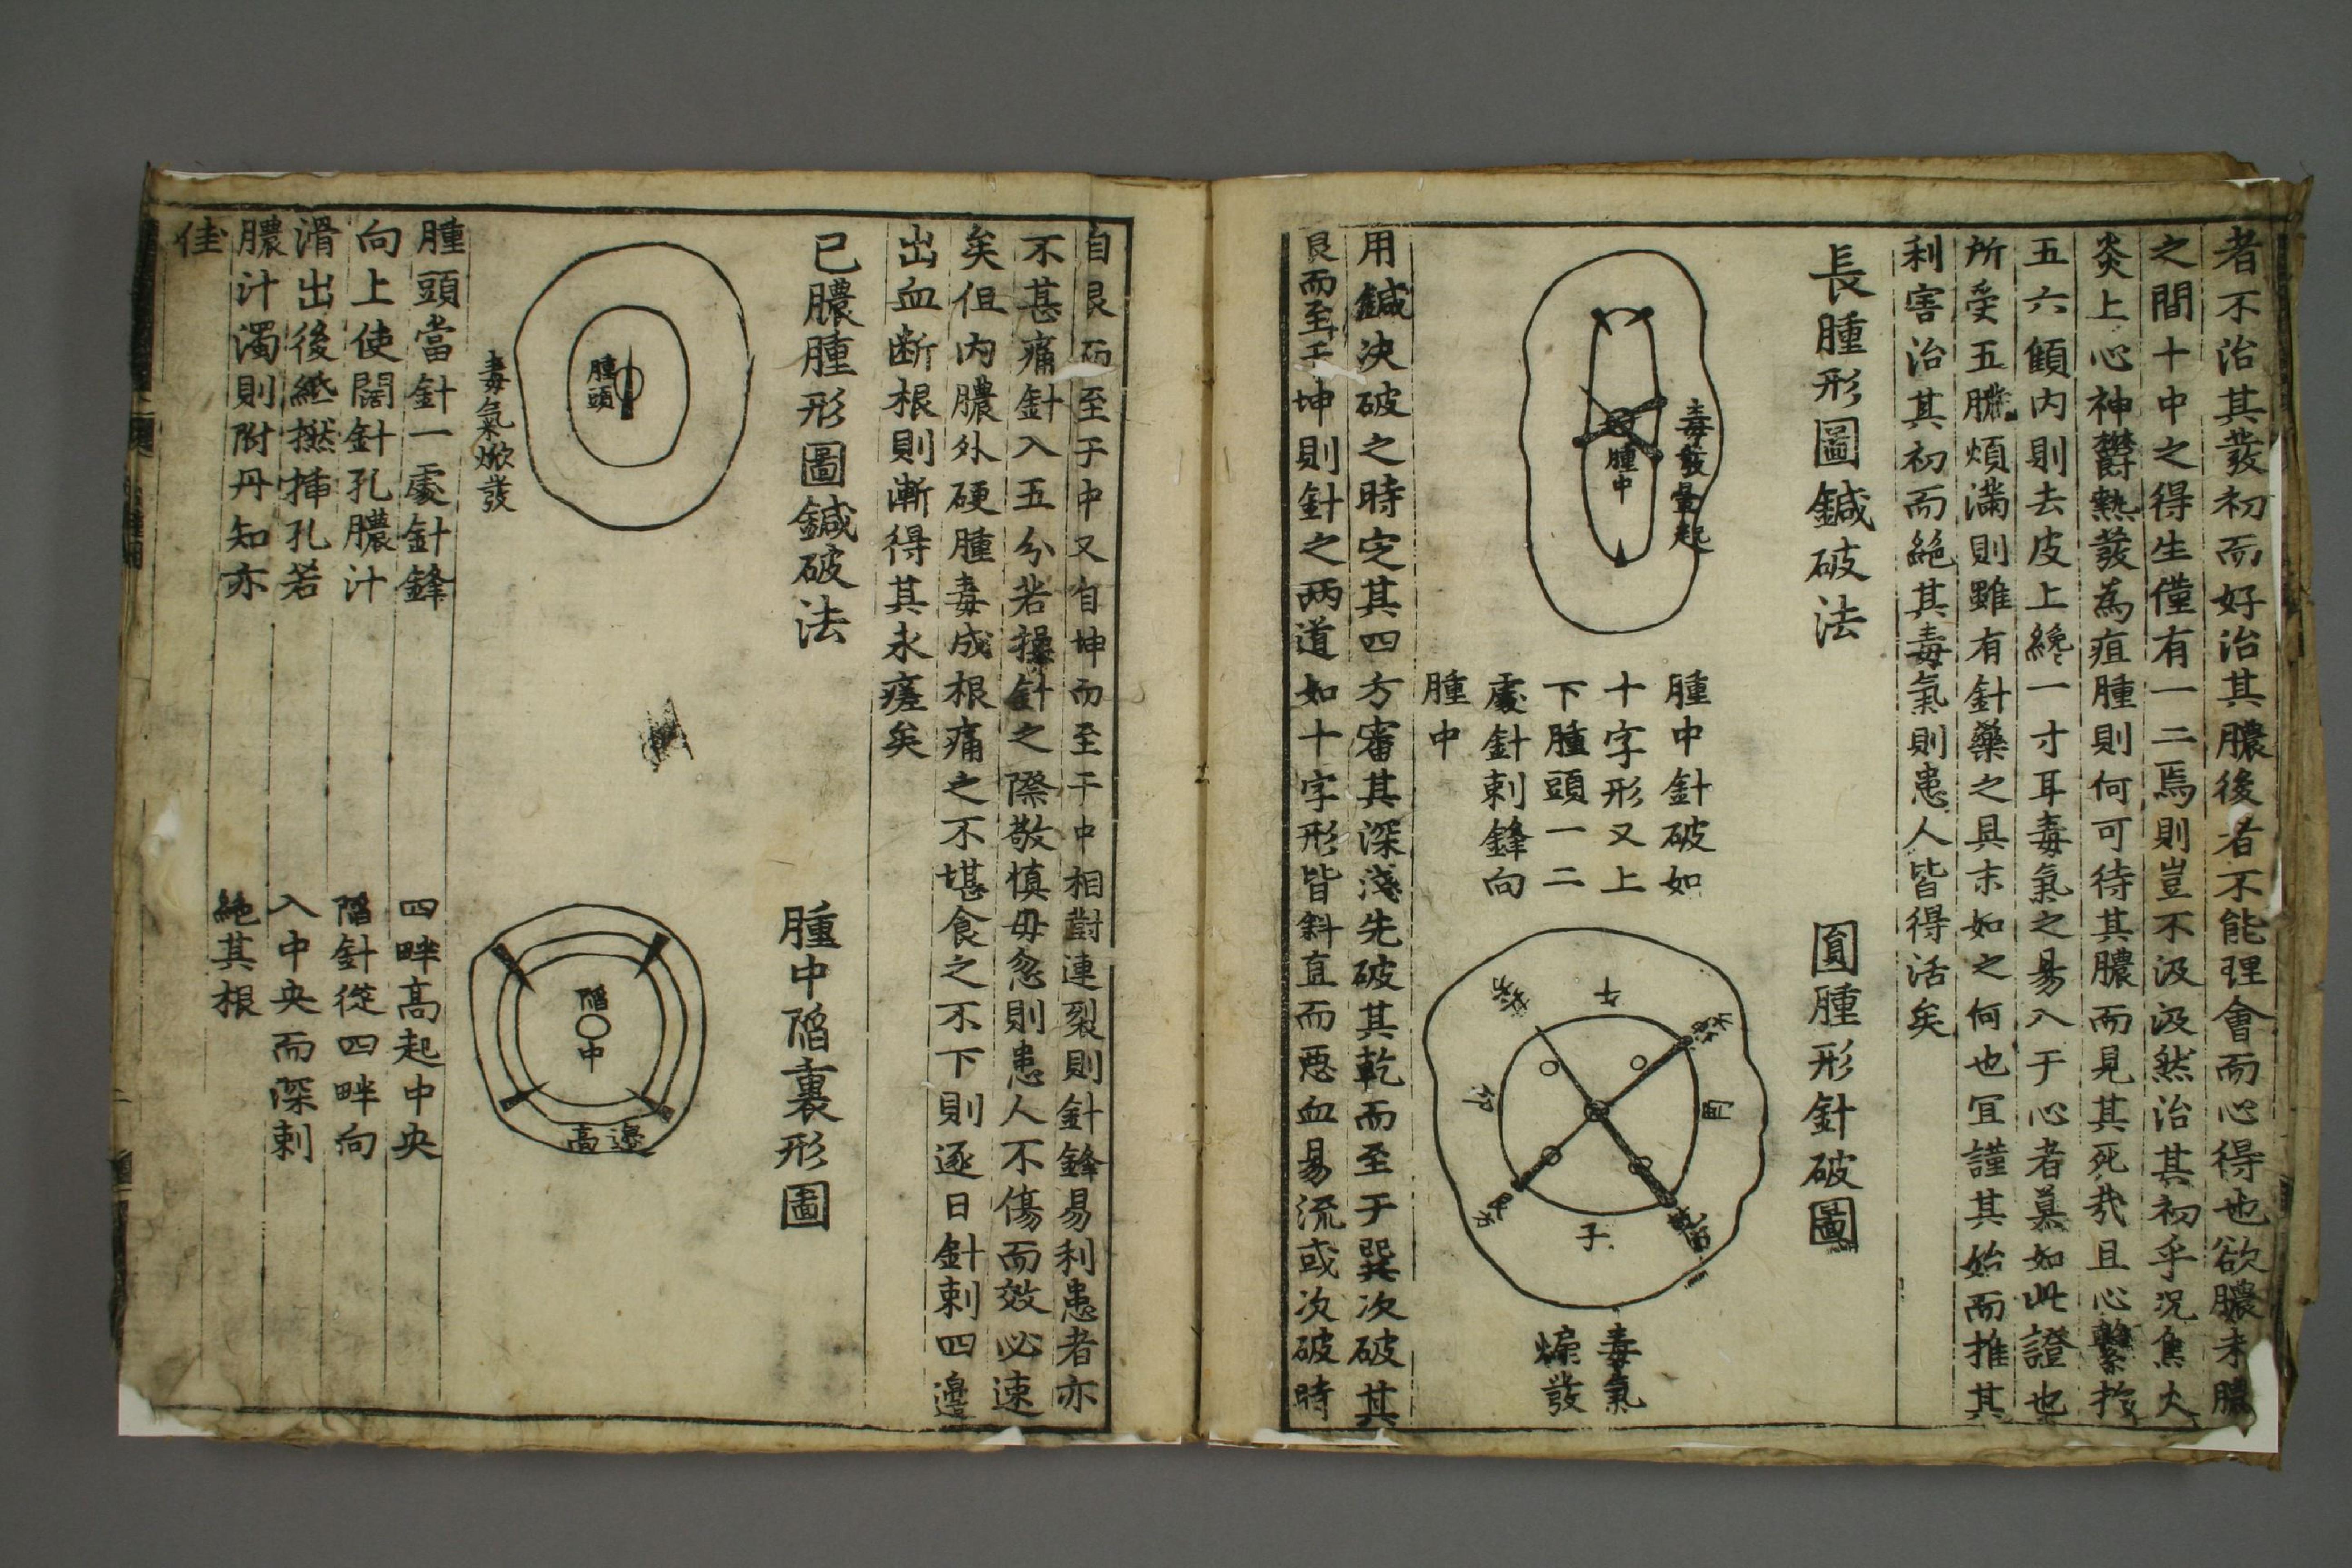 者不治其發初而好治其膿後者不能理會而心得也欲膿未膿
之間十中之得生僅有一二焉則豈不汲汲然治其初乎況焦火
炎上心神欝熱發為疽腫則何可待其膿而見其死㢤且心繫於
五六顀内則去皮上纔一寸耳毒氣之易入于心者莫如此證也
所受五臟煩滿則雖有針藥之具末如之何也冝謹其始而推其
利害治其初而絶其毒氣則患人皆得活矣
長腫形圖鍼破法
圓腫形針破圖
毒發暈起
腫中
腫中針破如
十字形又上
下腫頭一二
處針刺鋒向
腫中
午
酉
子
卯
乾
毒氣
煽發
用鍼決破之時定其四方審其深淺先破其乾而至于巽次破其
艮而至于坤則針之两道如十字形皆斜直而惡血易流或次破時
自艮而至于中又自坤而至于中相對連裂則針鋒易利患者亦
不甚痛針入五分若操針之際敬慎毋忽則患人不傷而效必速
矣但内膿外硬腫毒成根痛之不堪食之不下則逐日針刺四邊
出血断根則漸得其永瘥矣
已膿腫形圖鍼破法
腫中陷裏形圖
腫頭
毒氣焮發
陷中
高邊
腫頭當針一處針鋒
向上使闊針孔膿汁
滑出後紙撚揷孔若
膿汁濁則附丹知亦
佳
四畔高起中央
陷針從四畔向
入中央而深刺
絶其根